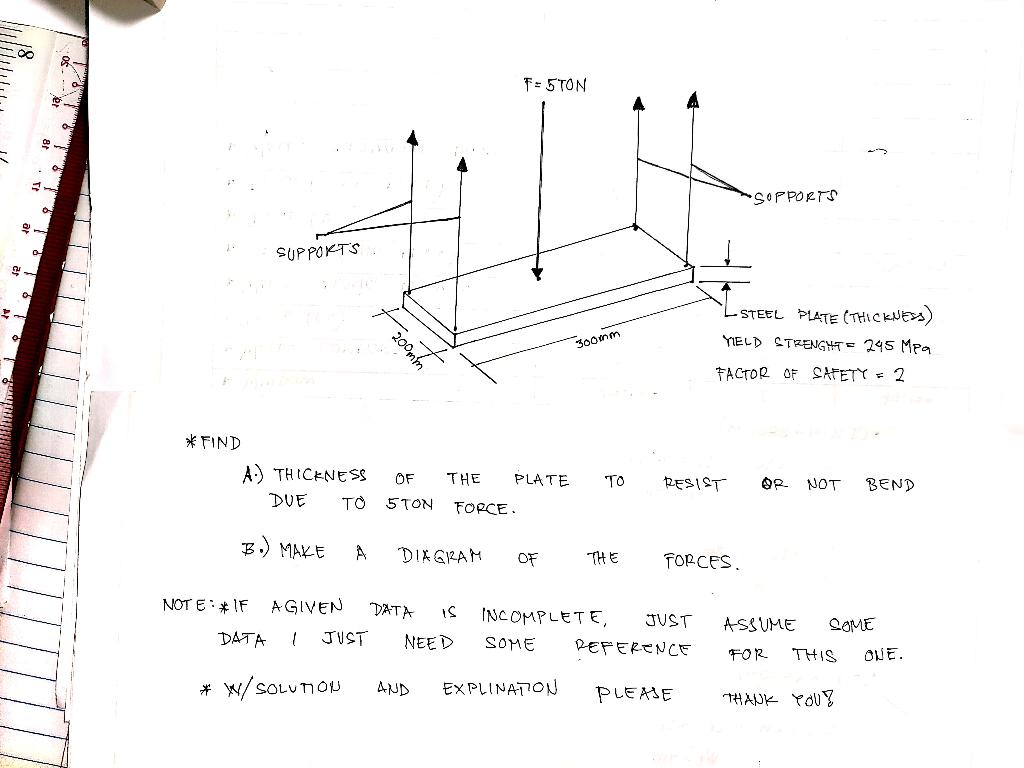 F = 5TON
SUPPORTS
SOPPORTS
200mm
300mm
STEEL PLATE (THICKNESS)
YIELD STRENGHT = 245 MPa
FACTOR OF SAFETY = 2
* FIND
A.) THICKNESS OF THE PLATE TO RESIST OR NOT BEND
DUE TO 5TON FORCE.
B.) MAKE A DIAGRAM OF THE FORCES.
NOTE: * IF A GIVEN DATA IS INCOMPLETE, JUST ASSUME SOME
DATA I JUST NEED SOME REFERENCE FOR THIS ONE.
* W/SOLUTION AND EXPLINATION PLEASE THANK YOU!